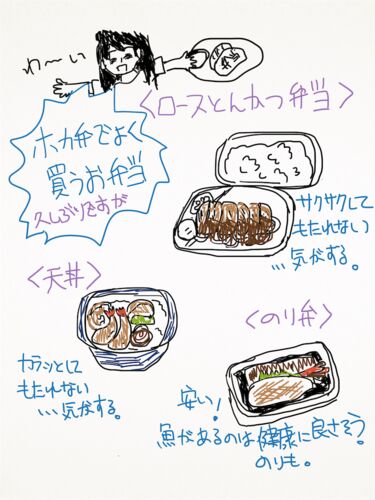 わ〜い
ホカ弁でよく
買うお弁当
久しぶりですが
〈ロースとんかつ弁当〉
サクサクして
もたれない
…気がする。
〈天丼〉
カラッとして
もたれない
…気がする。
〈のり弁〉
安い!
魚があるのは健康に良さそう。
のりも。